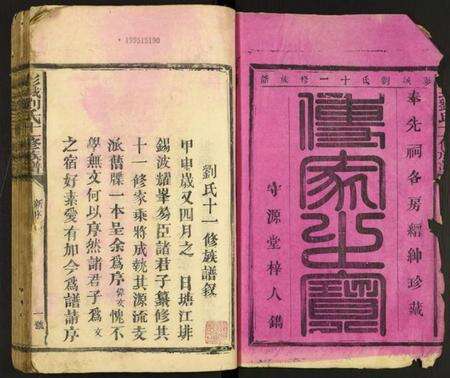 彭城劉氏十一修族譜
奉先祠各房紳珍藏
傳家之寶
守源堂梓人鐫
劉氏十一修族譜叙
甲申歲又四月之 日塘江排
錫波耀峯易臣諸君子纂修其
十一修家乘將成執其源流支
派舊牒一本呈余爲序 愧不
學無文何以序然諸君子爲
之宿好素愛有加今爲譜請序
彭城劉氏十一修族譜
新序
一號
* 195515190